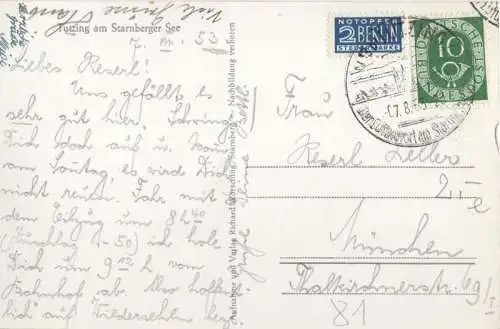 Tutzing am Starnberger See
7. VIII. 53
Liebes Reserl!
Uns gefällt es
sehr gut hier. Schwing
Dich doch auf u. komm
am Sonntag es wird Dich
nicht reuen. Fahr mit
dem Eilzug um 8 h 40
(Zuschlag 1-50) ich hole
Dich um 9 12 h vom
Bahnhof ab. Also hoffentlich
auf Wiedersehen
Viele Grüße
Nachbildung verboten
Aufnahme und Verlag Richard Wörsching, Starnberg
NOTOPFER
2 BERLIN
STEUERMARKE
DEUTSCHE BUNDESPOST
10
TUTZING
der Luftkurort am Starnberger See
-7.8.
Frau
Reserl Zeller
München
Thalkirchnerstr. 69/I
2,-e
81